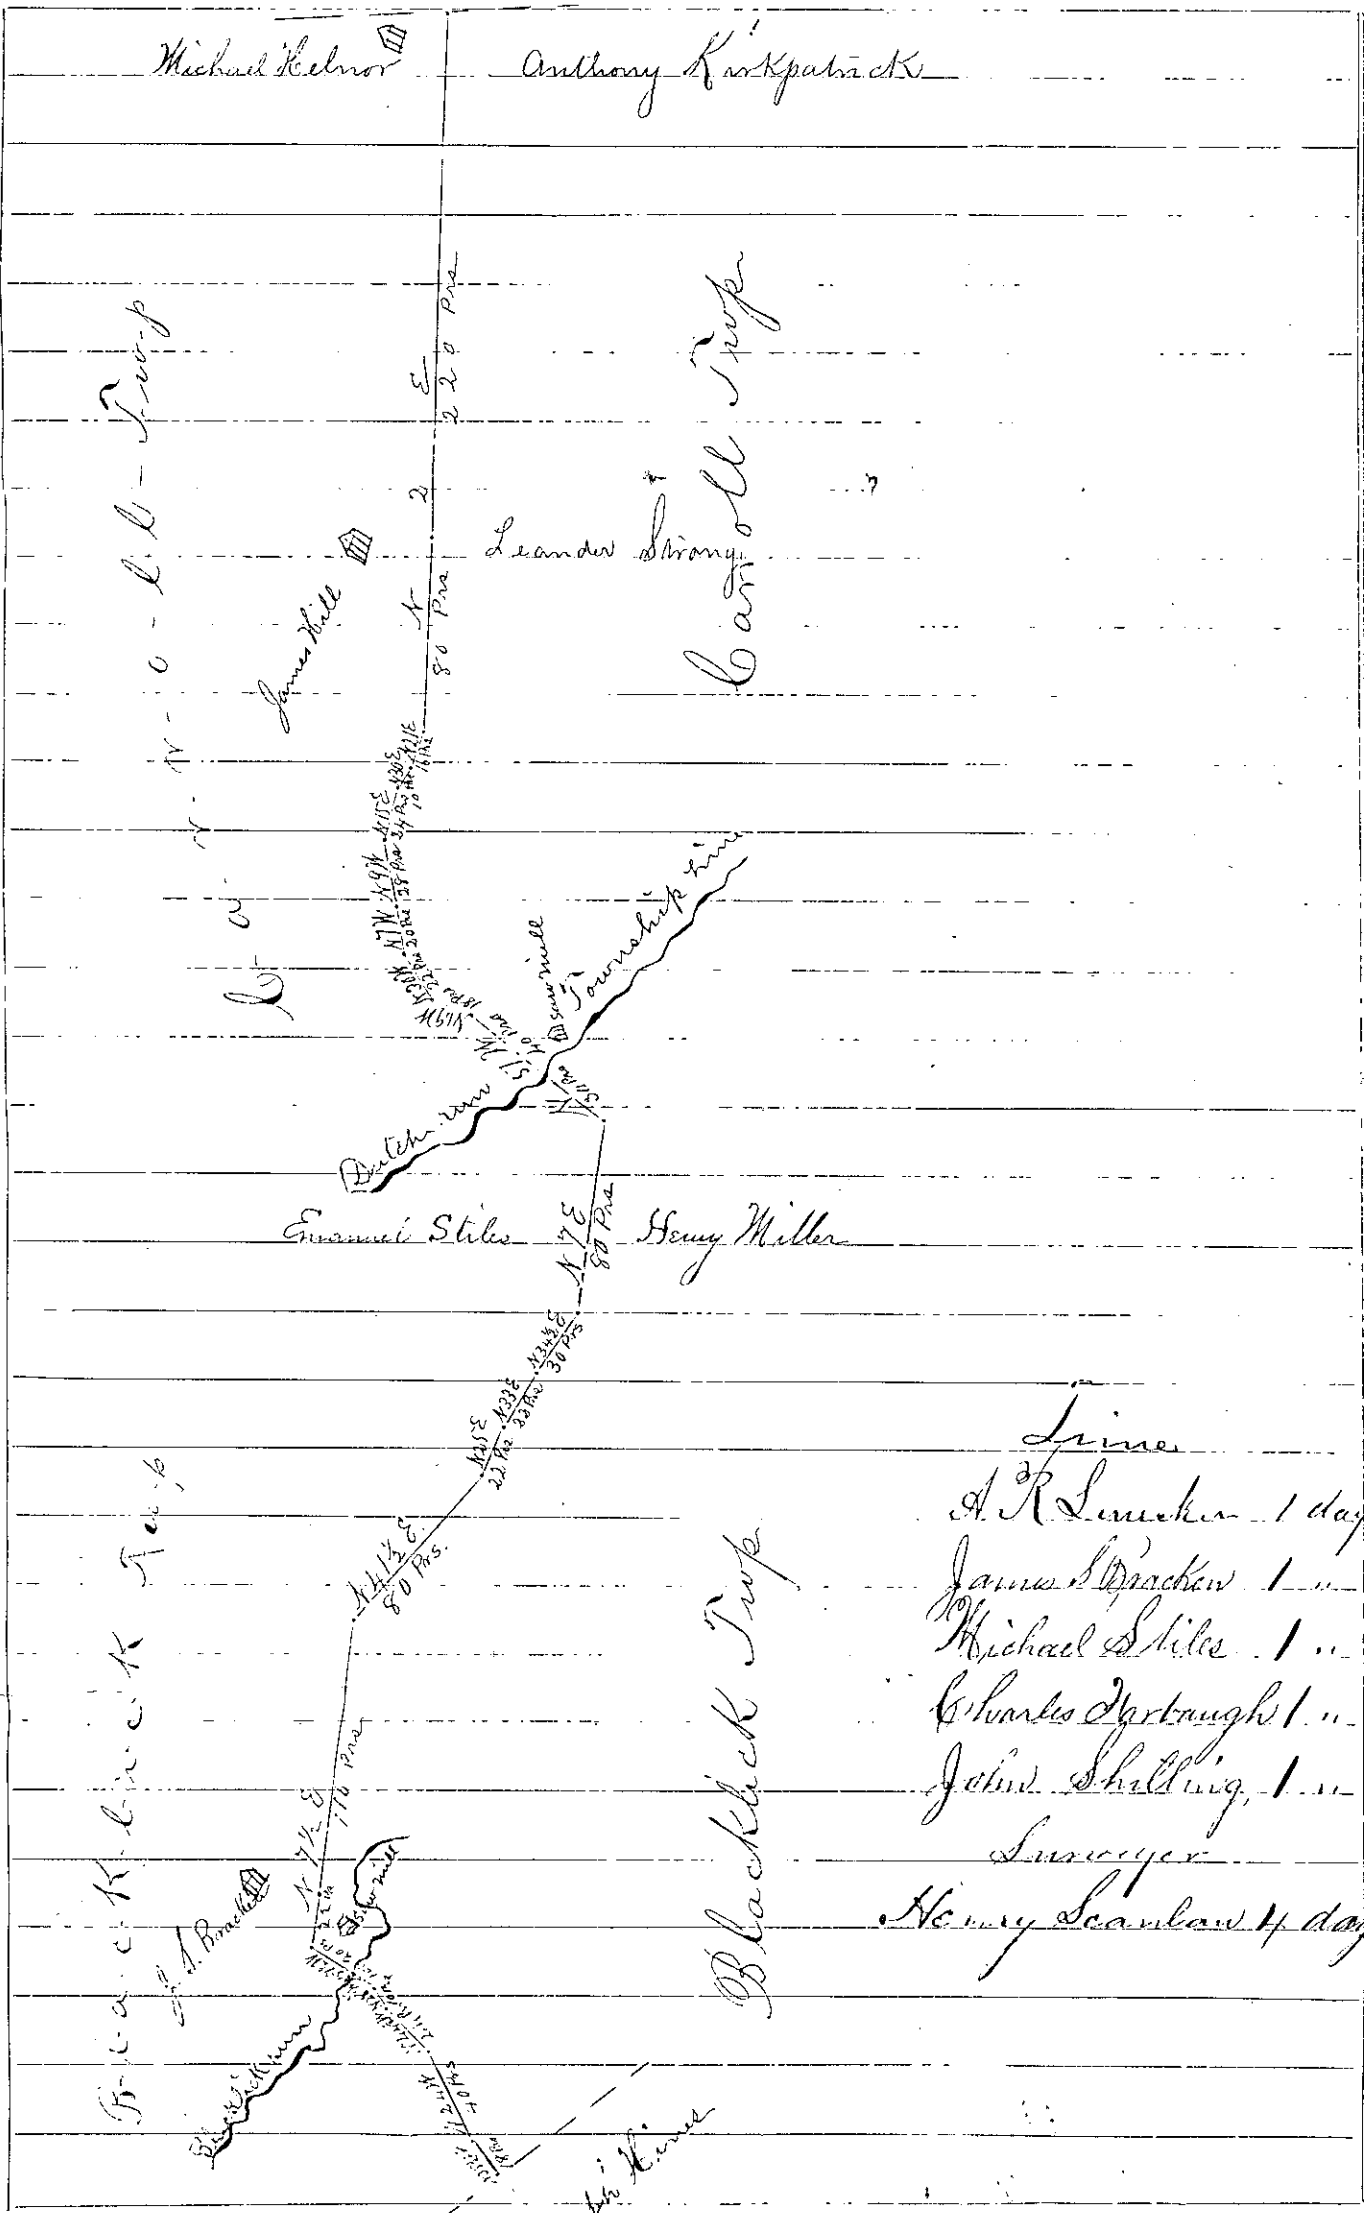 Michael Helnor
Anthony Kirkpatrick
C-a-r-r-o-l-l-Twp
N 2 E
220 Prs
80 Prs
Carroll Twp
Leander Strong
James Hill
N21E
16 Prs
N30E
10 Prs
N15E
24 Prs
N9W
28 Prs
N7W
20 Prs
22 Prs
N19W
18 Prs
51 W
40 Prs
Saw mill
Township Line
Dutch run
Emanuel Stiles
N 7 E
80 Prs
Henry Miller
N34½E
30 Prs
N33E
22 Prs
N25E
22 Prs
N 41½ E
80 Prs.
B-l-a-c-k-l-i-c-k Twp
Blacklick Twp
N 7½ E
110 Prs
J. S. Bracken
Saw mill
Blacklick run
N24W
40 Prs
Hines
Time
A. R. 1 day
James S Bracken 1 "
Michael Stiles 1 "
Charles 1 "
John Shilling, 1 "
Surveyor
Henry Scanlan 4 day